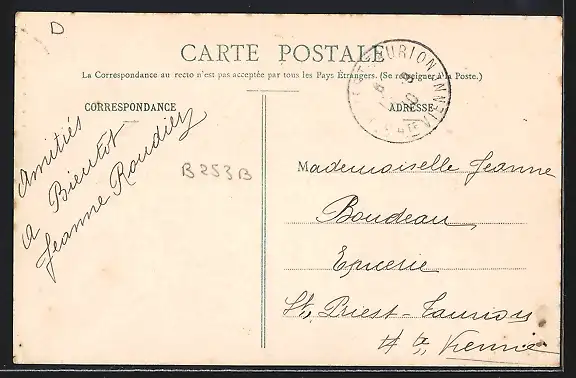 D
CARTE POSTALE
La Correspondance au recto n'est pas acceptée par tous les Pays Étrangers. (Se renseigner à la Poste.)
CORRESPONDANCE
ADRESSE
Amitiés
a Bientot
Jeanne Roudier
B253B
Mademoiselle Jeanne
Boudeau,
Epicerie
St, Priest-Taurion
Hte, Vienne